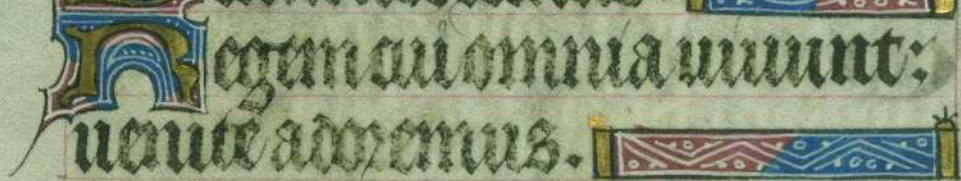 Regem cui omnia uiuunt:
uenite adoremus.